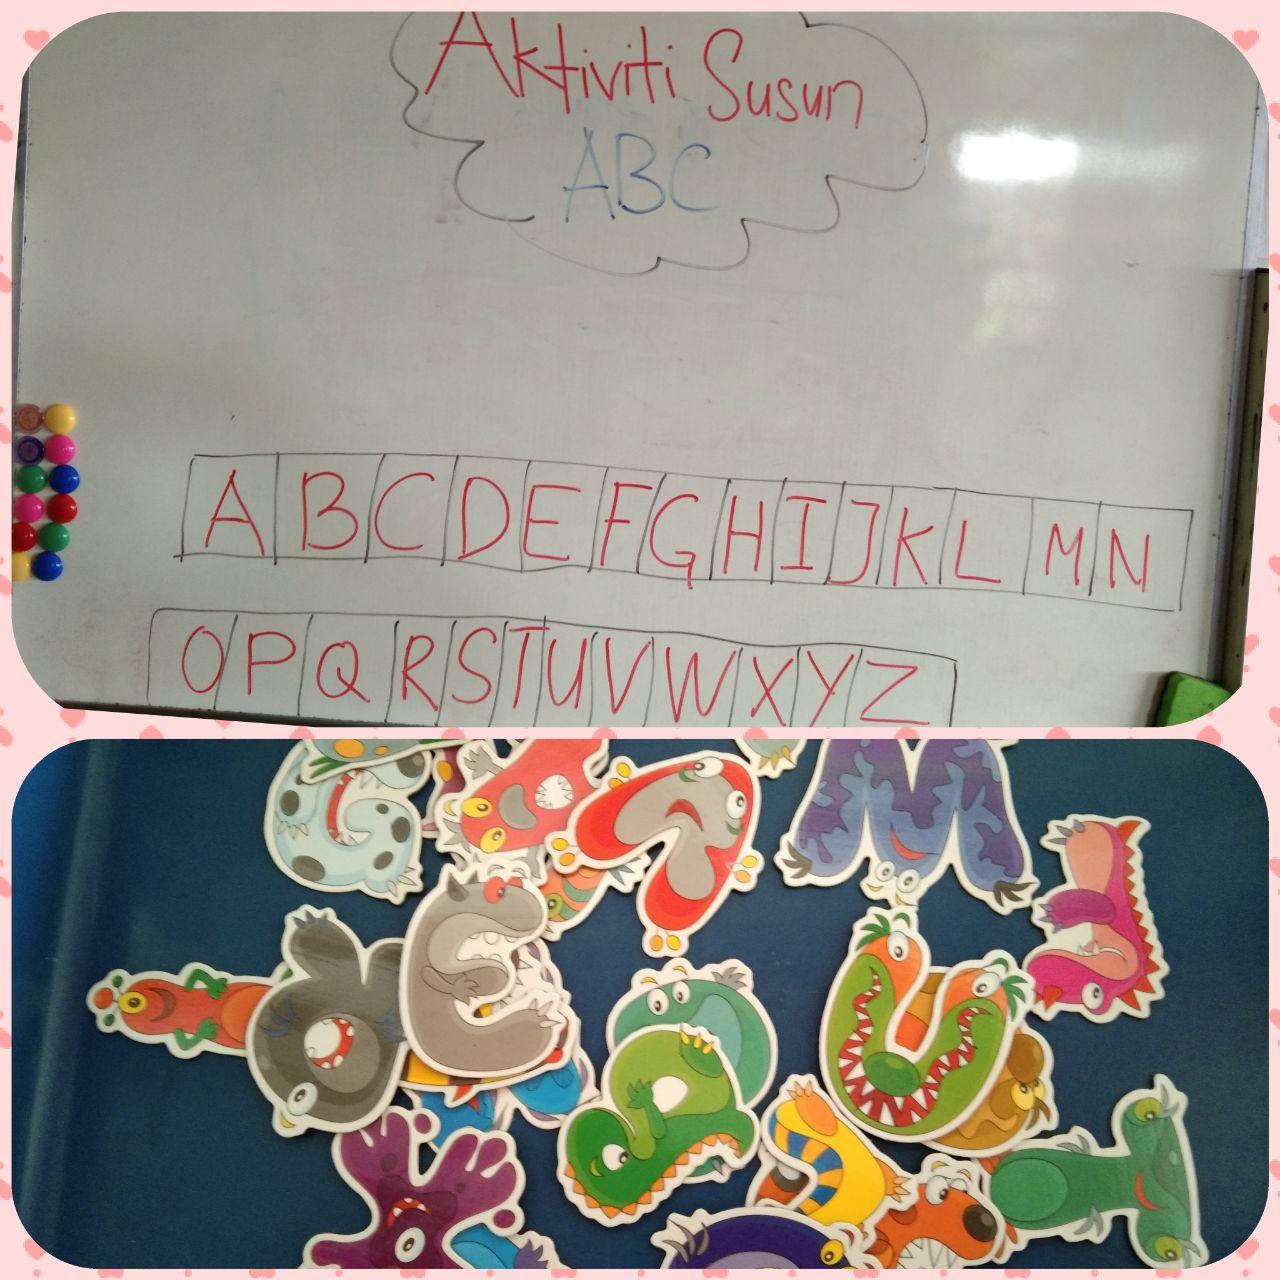 Aktiviti Susun
ABC
A B C D E F G H I J K L M N
O P Q R S T U V W X Y Z
G
M
E
U
T